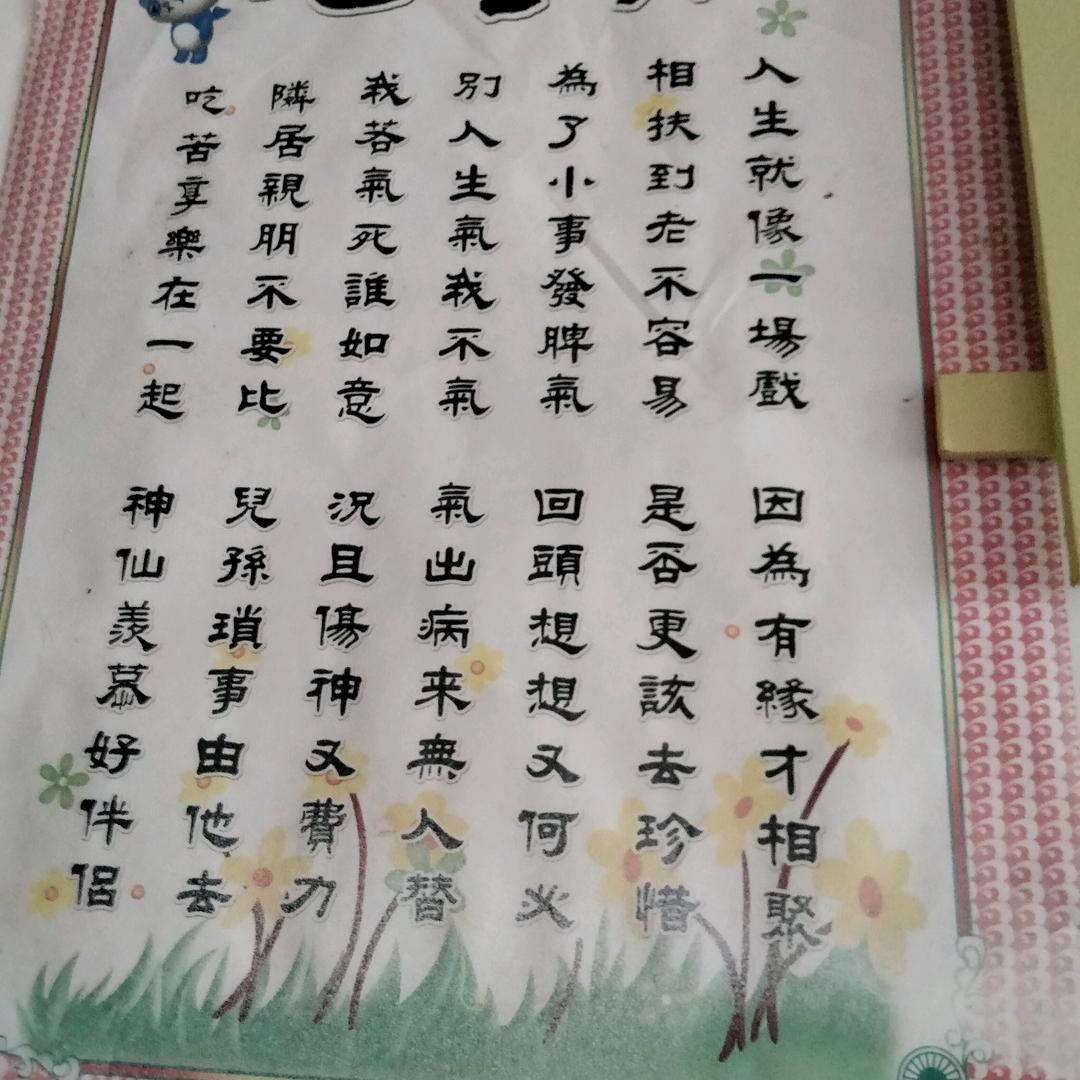 人生就像一場戲
因為有緣才相聚
相扶到老不容易
是否更該去珍惜
為了小事發脾氣
回頭想想又何必
別人生氣我不氣
氣出病来無人替
我若氣死誰如意
況且傷神又費力
隣居親朋不要比
兒孫瑣事由他去
吃苦享樂在一起
神仙羨慕好伴侶